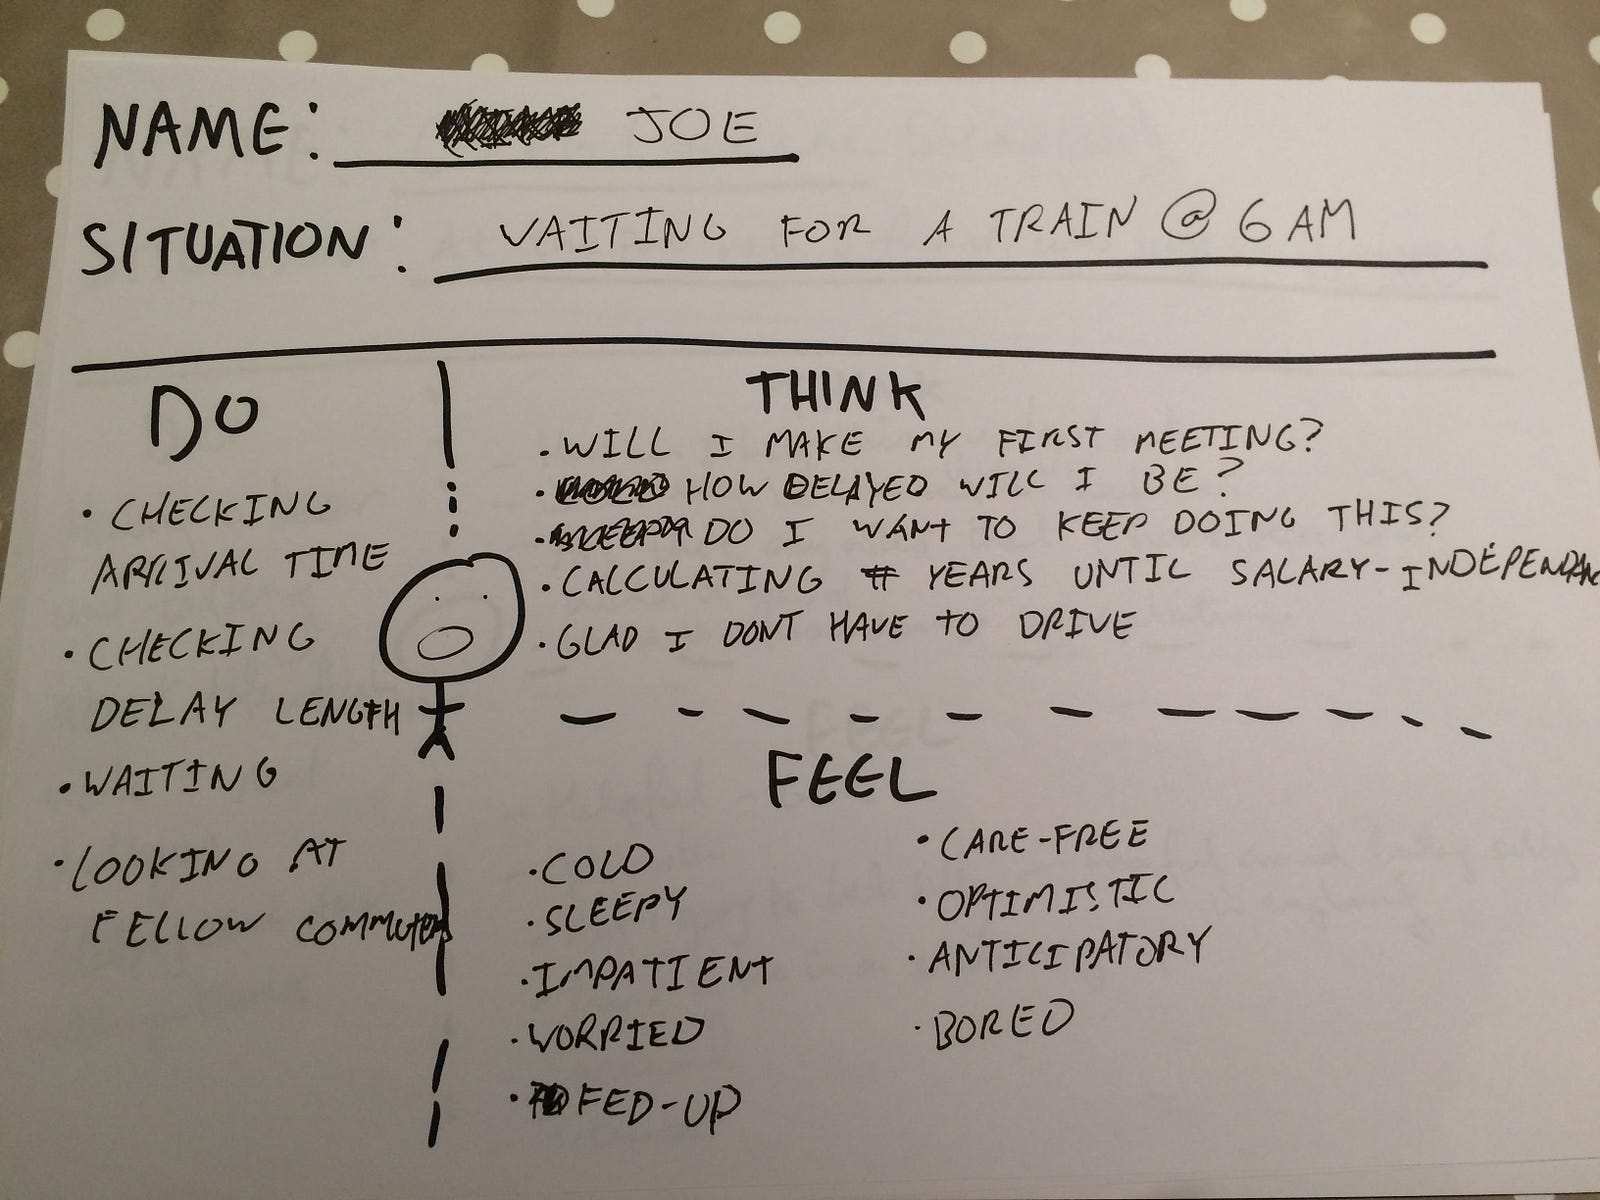 NAME: JOE
SITUATION: WAITING FOR A TRAIN @ 6 AM
DO
• CHECKING
ARRIVAL TIME
• CHECKING
DELAY LENGTH
• WAITING
• LOOKING AT
FELLOW COMMUTERS
THINK
• WILL I MAKE MY FIRST MEETING?
• HOW DELAYED WILL I BE?
• DO I WANT TO KEEP DOING THIS?
• CALCULATING # YEARS UNTIL SALARY-INDEPENDANC
• GLAD I DONT HAVE TO DRIVE
FEEL
• COLD
• SLEEPY
• IMPATIENT
• WORRIED
• FED-UP
• CARE-FREE
• OPTIMISTIC
• ANTICIPATORY
• BORED